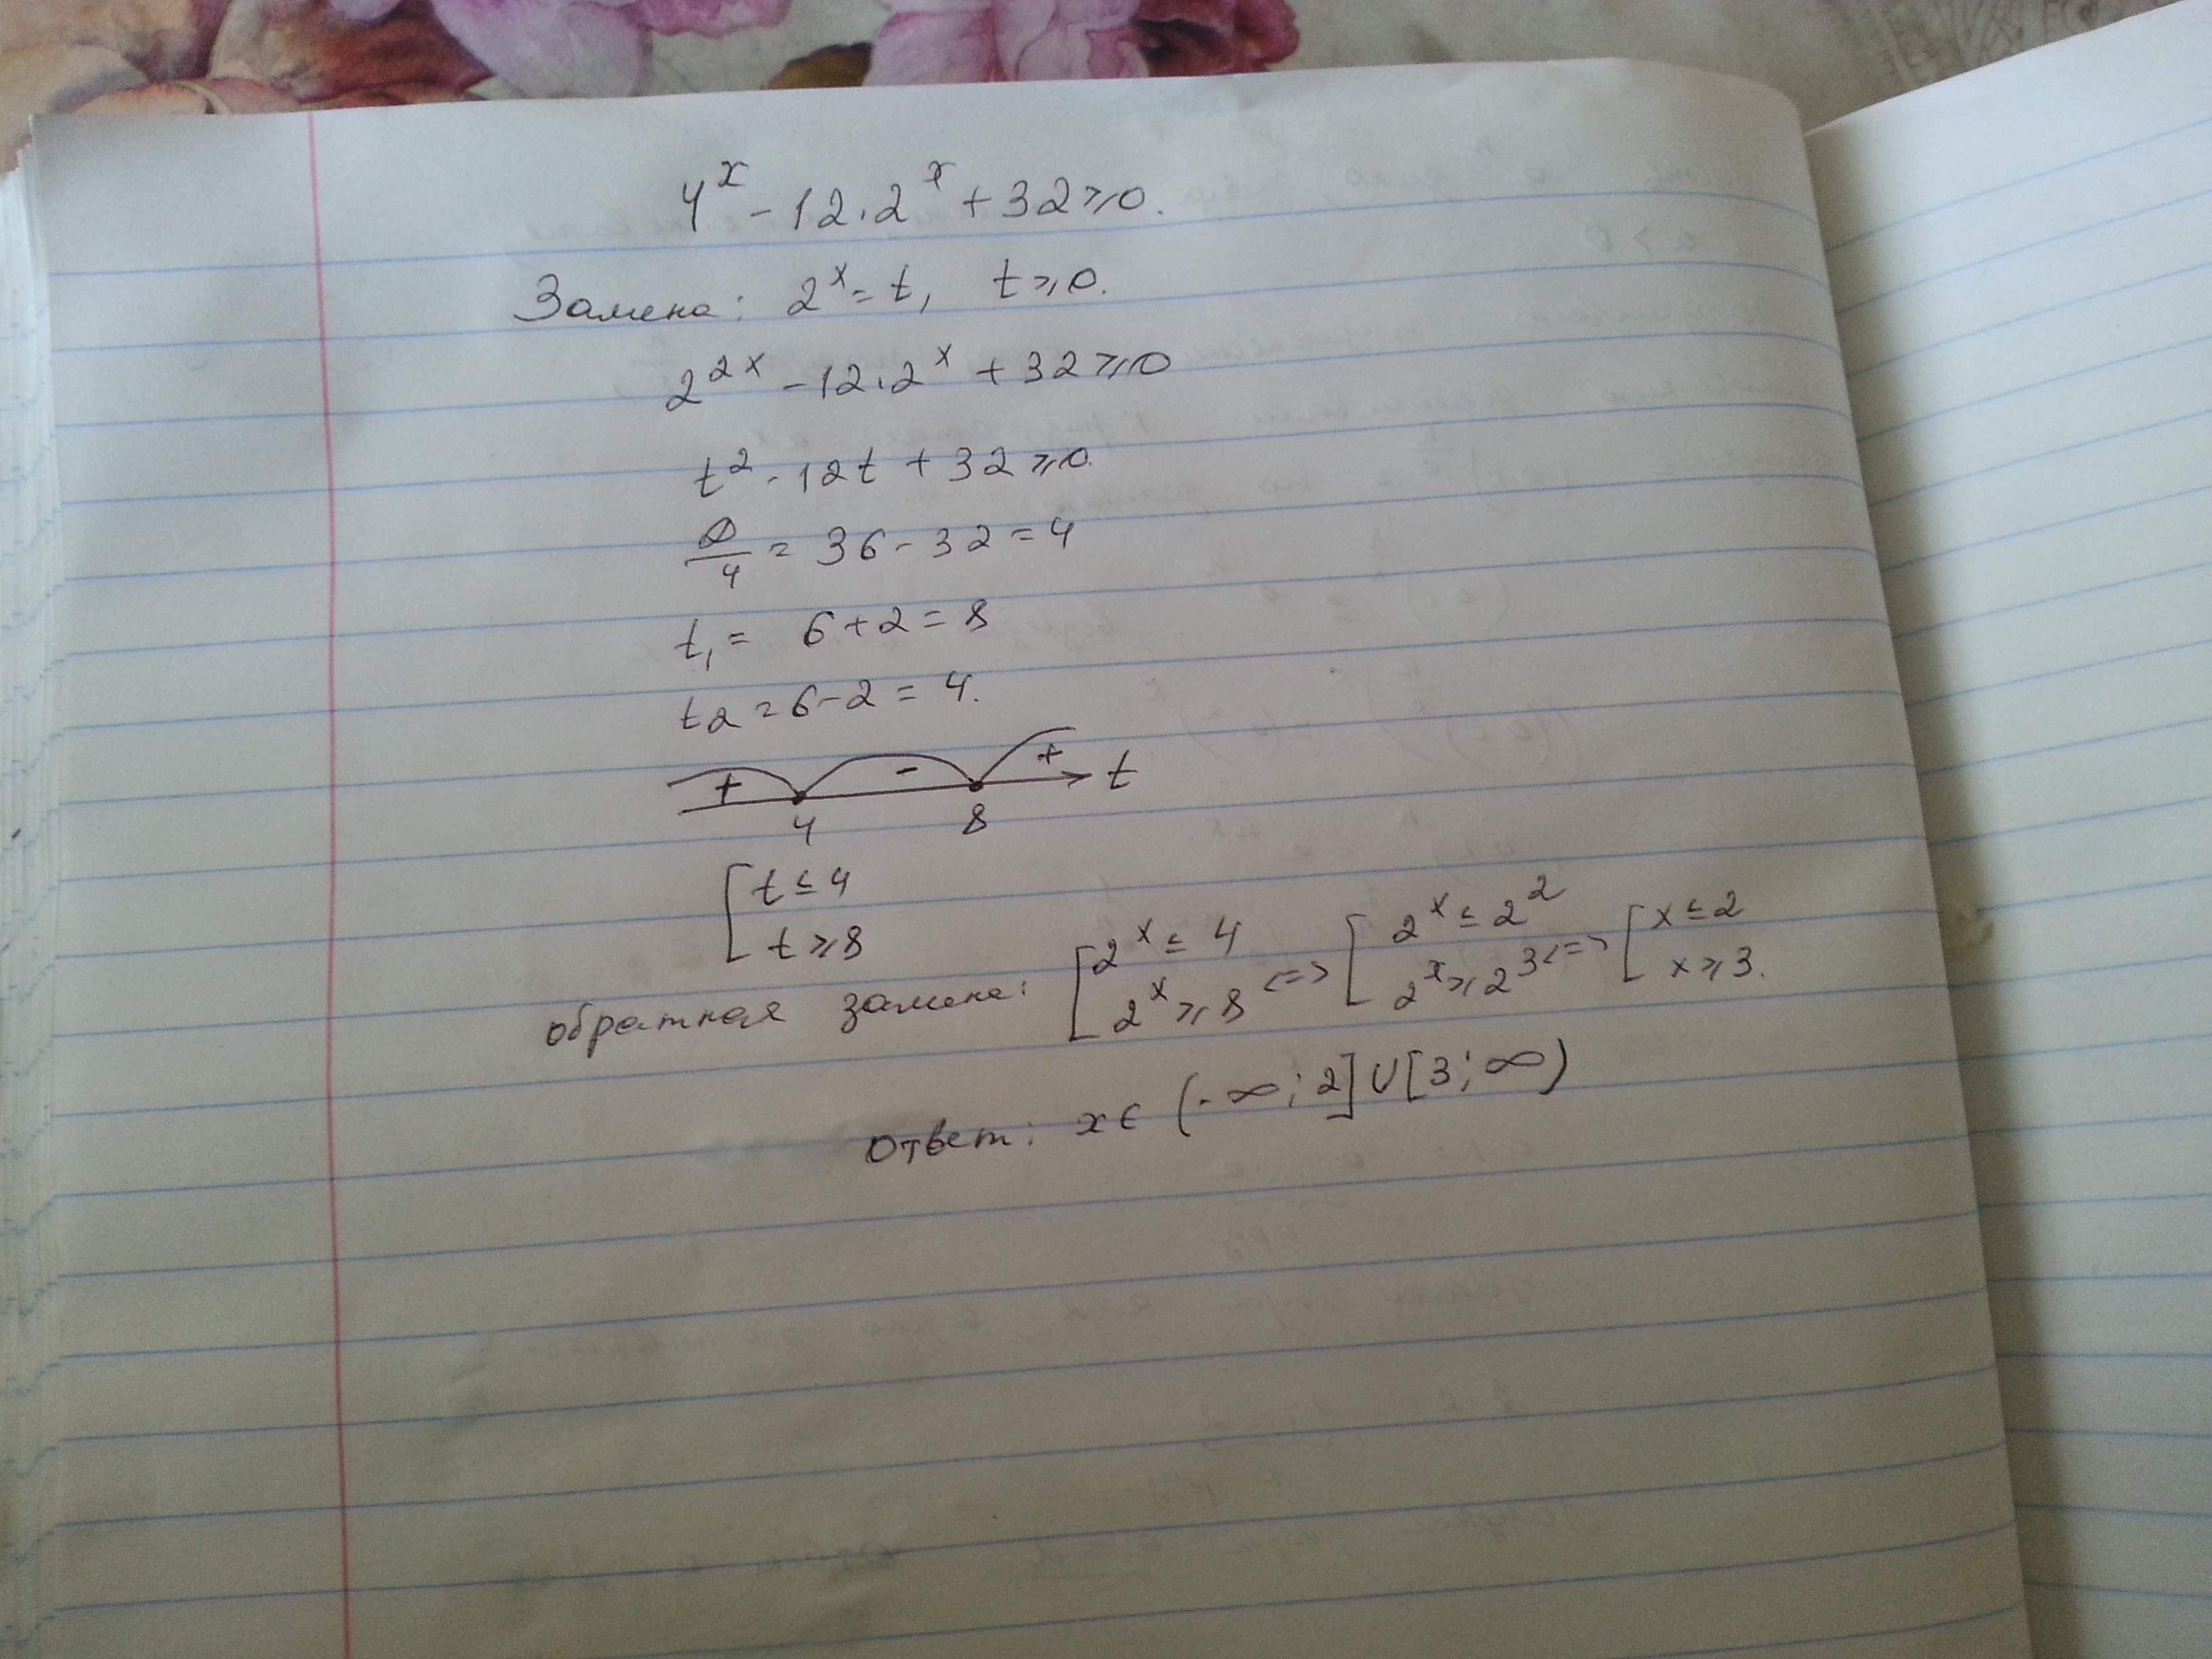 4^x - 12 · 2^x + 32 ⩾ 0.
Замена: 2^x = t, t ⩾ 0.
2^{2x} - 12 · 2^x + 32 ⩾ 0
t^2 - 12t + 32 ⩾ 0.
D/4 = 36 - 32 = 4
t_1 = 6 + 2 = 8
t_2 = 6 - 2 = 4.
+ - + t
4 8
[ t ≤ 4
t ⩾ 8
обратная замена: [ 2^x ≤ 4 ; 2^x ⩾ 8 <=> [ 2^x ≤ 2^2 ; 2^x ⩾ 2^3 <=> [ x ≤ 2 ; x ⩾ 3.
Ответ: x ∈ (-∞; 2] ∪ [3; ∞)